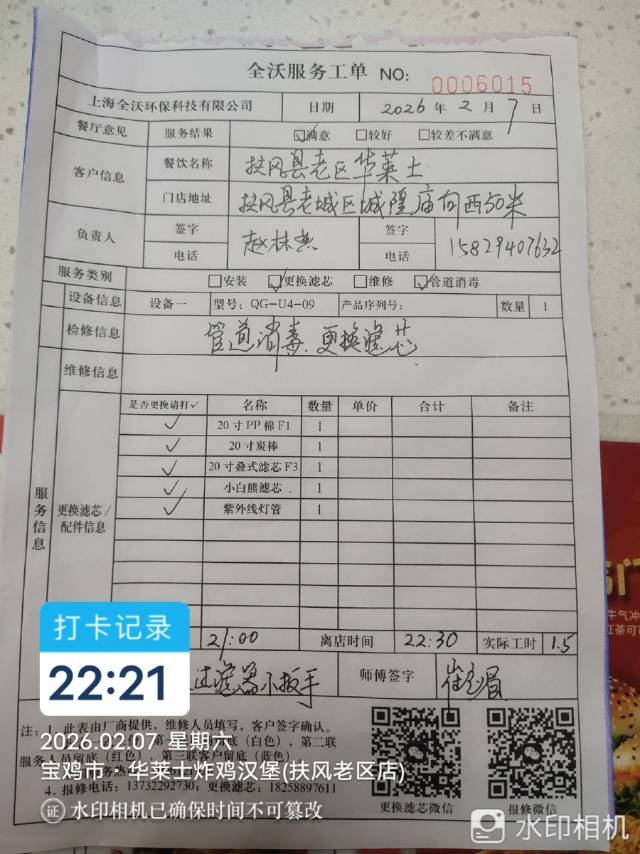 全沃服务工单 NO: 0006015
上海全沃环保科技有限公司 日期 2026年2月7日
餐厅意见 服务结果 ☑满意 □较好 □较差不满意
客户信息 餐饮名称 扶风县老区华莱士
门店地址 扶风县老城区城隍庙向西50米
负责人 签字 赵林 签字
电话 电话 15829407632
服务类别 □安装 ☑更换滤芯 □维修 ☑管道消毒
设备信息 设备一 型号: QG-U4-09 产品序列号: 数量 1
检修信息 管道消毒.更换滤芯
维修信息
服务信息 更换滤芯/配件信息
是否更换请打✓ 名称 数量 单价 合计 备注
✓ 20寸PP棉F1 1
✓ 20寸炭棒 1
✓ 20寸叠式滤芯F3 1
✓ 小白熊滤芯 1
✓ 紫外线灯管 1
21:00 离店时间 22:30 实际工时 1.5
过滤器小扳手 师傅签字
打卡记录
22:21
注: 1. 此表由厂商提供, 维修人员填写, 客户签字确认。
(白色), 第二联
服务人员留底 (红色), 第三联客户留底 (蓝色)
4. 报修电话: 13732292730, 更换滤芯: 18258897611
更换滤芯微信 报修微信
2026.02.07 星期六
宝鸡市·华莱士炸鸡汉堡(扶风老区店)
证 水印相机已确保时间不可篡改
水印相机